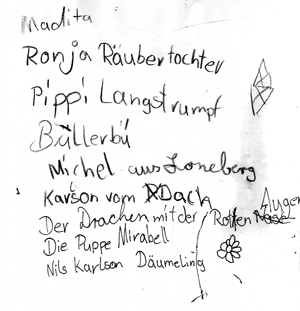 Madita
Ronja Räubertochter
Pippi Langstrumpf
Büllerbü
Michel aus Loneberg
Karlson vom Dach
Der Drachen mit der Roten Augen
Die Puppe Mirabell
Nils Karlson Däumeling